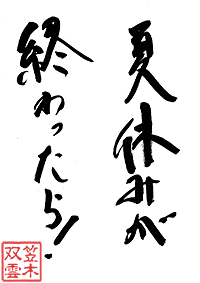 夏休みが
終わったら!
笠木
双雲